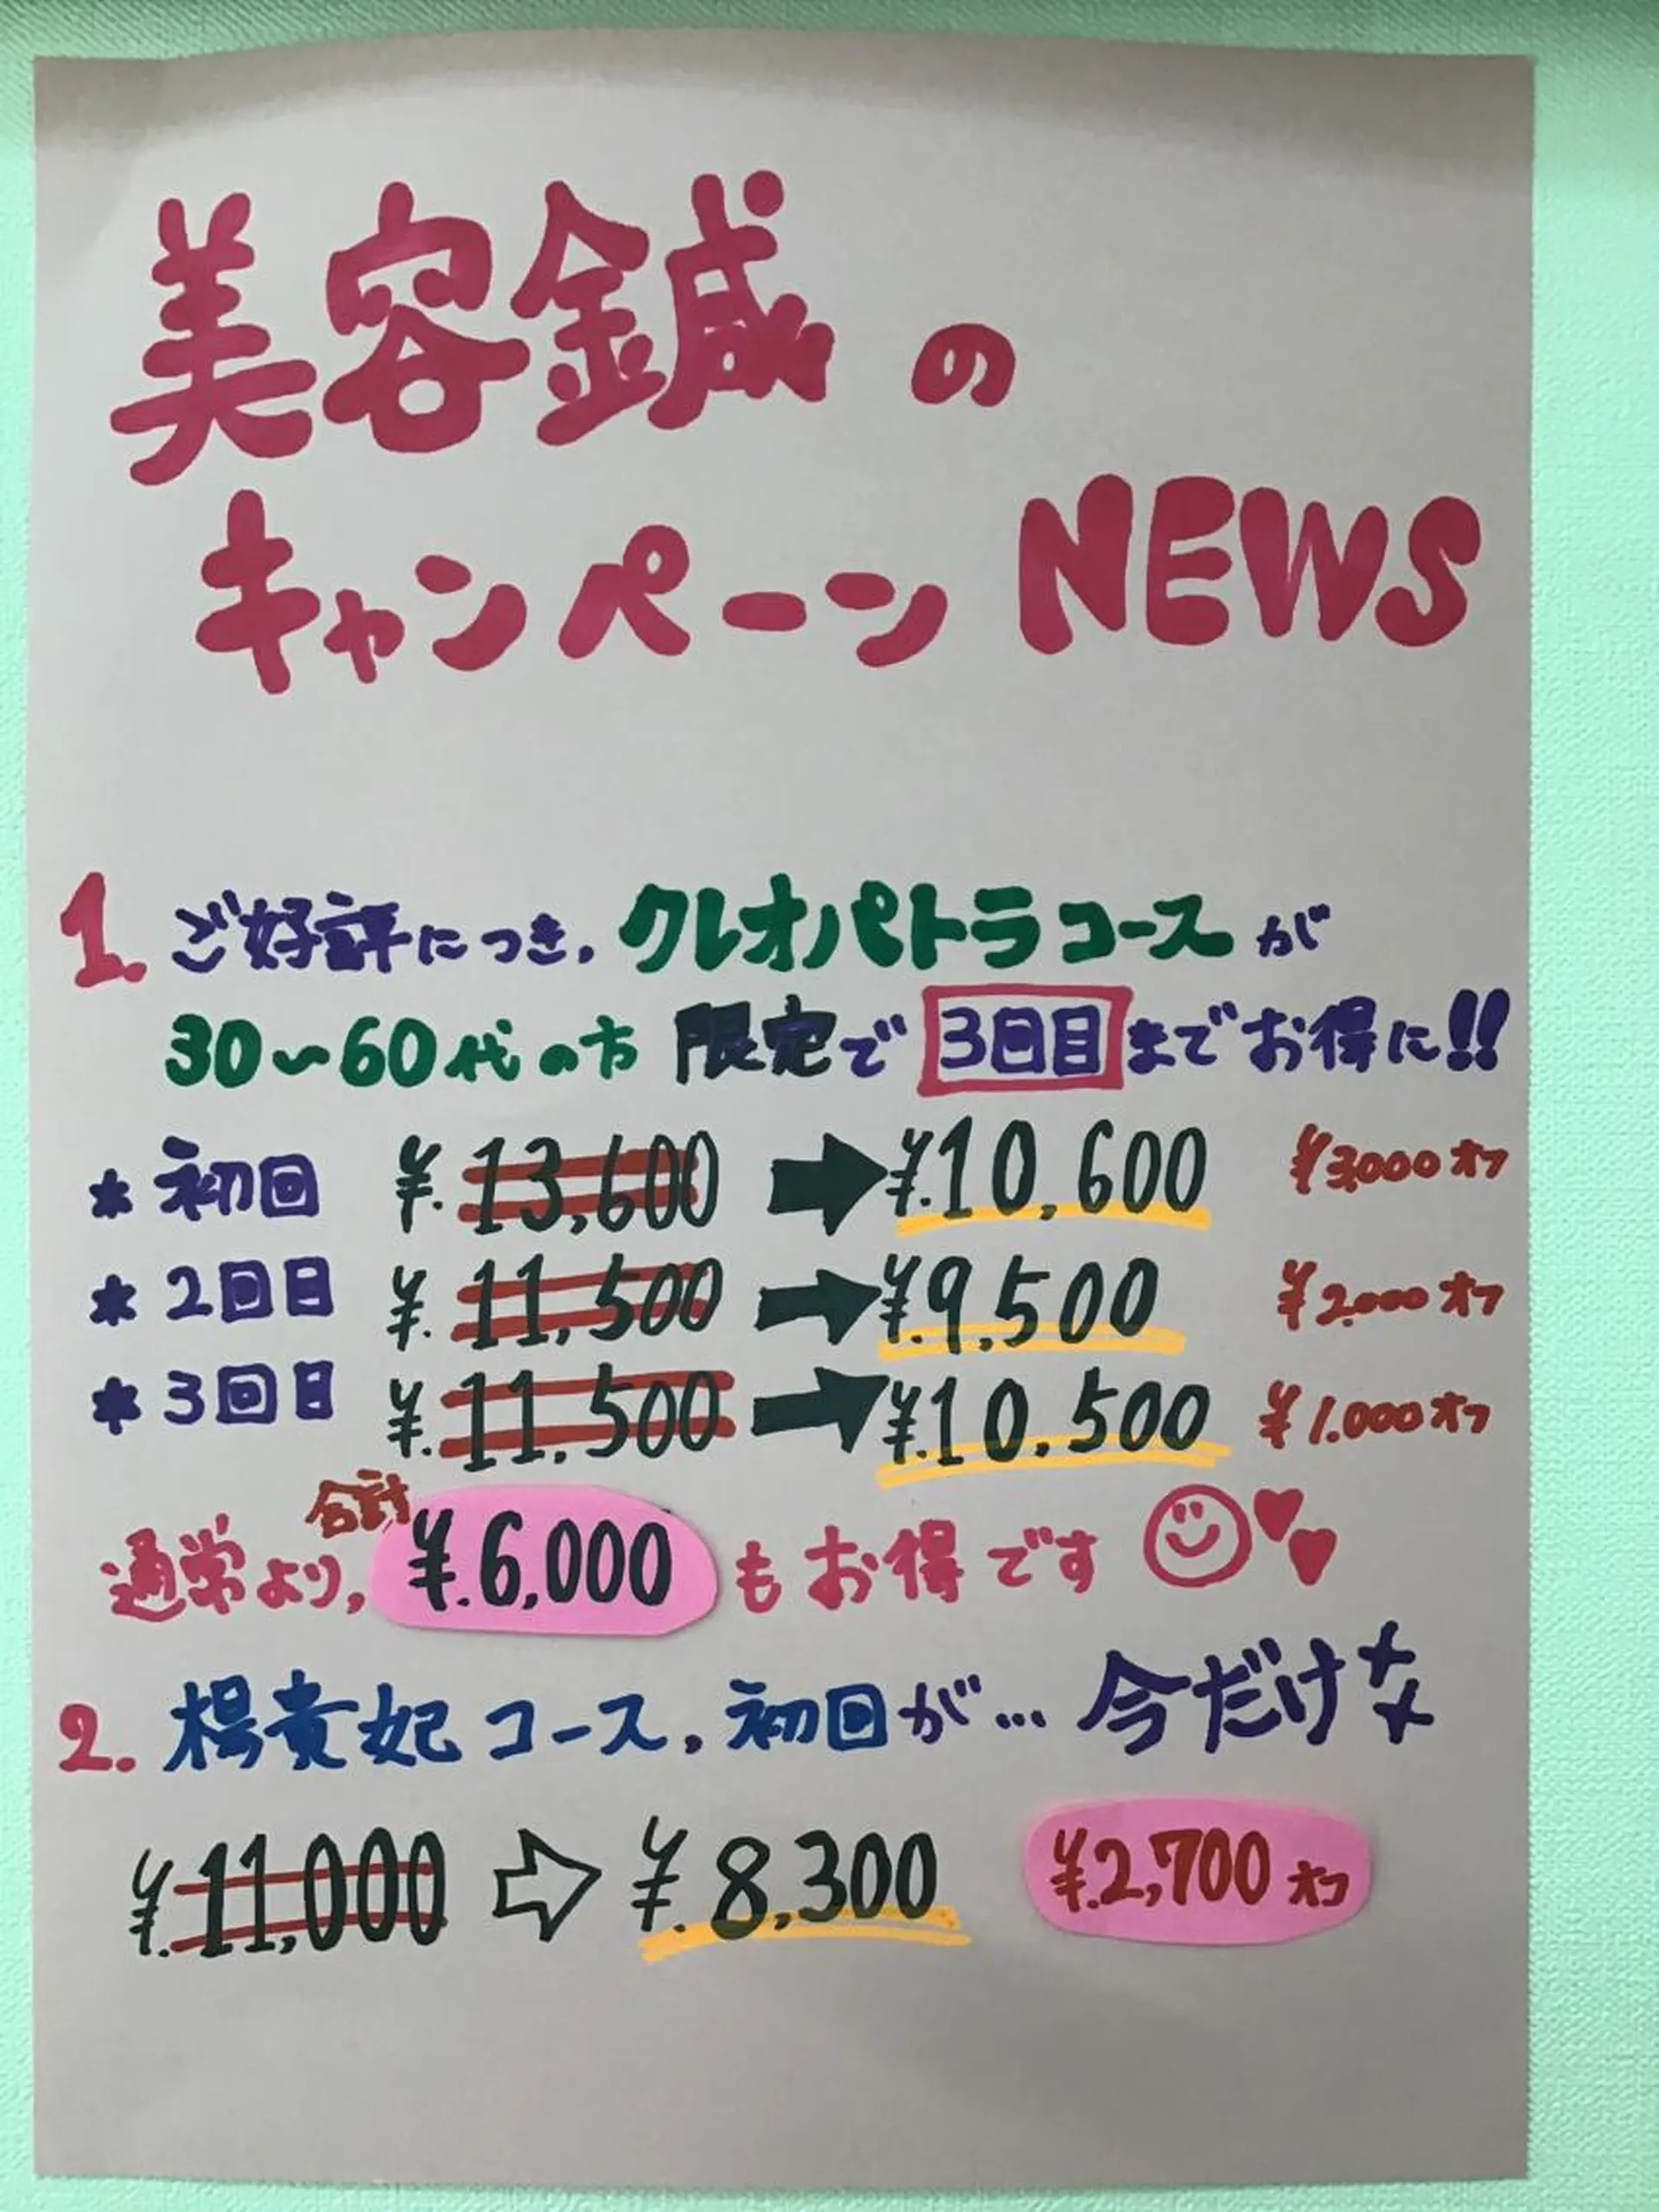 美容鍼の
キャンペーンNEWS
1. ご好評につき、クレオパトラコースが
30〜60代の方 限定で 3回目までお得に!!
* 初回 ¥.13,600 ➡ ¥.10,600 ¥3,000オフ
* 2回目 ¥.11,500 ➡ ¥.9,500 ¥2,000オフ
* 3回目 ¥.11,500 ➡ ¥.10,500 ¥1,000オフ
通常より、合計¥.6,000もお得です
2. 楊貴妃コース、初回が… 今だけ
¥.11,000 ⇨ ¥.8,300 ¥.2,700オフ